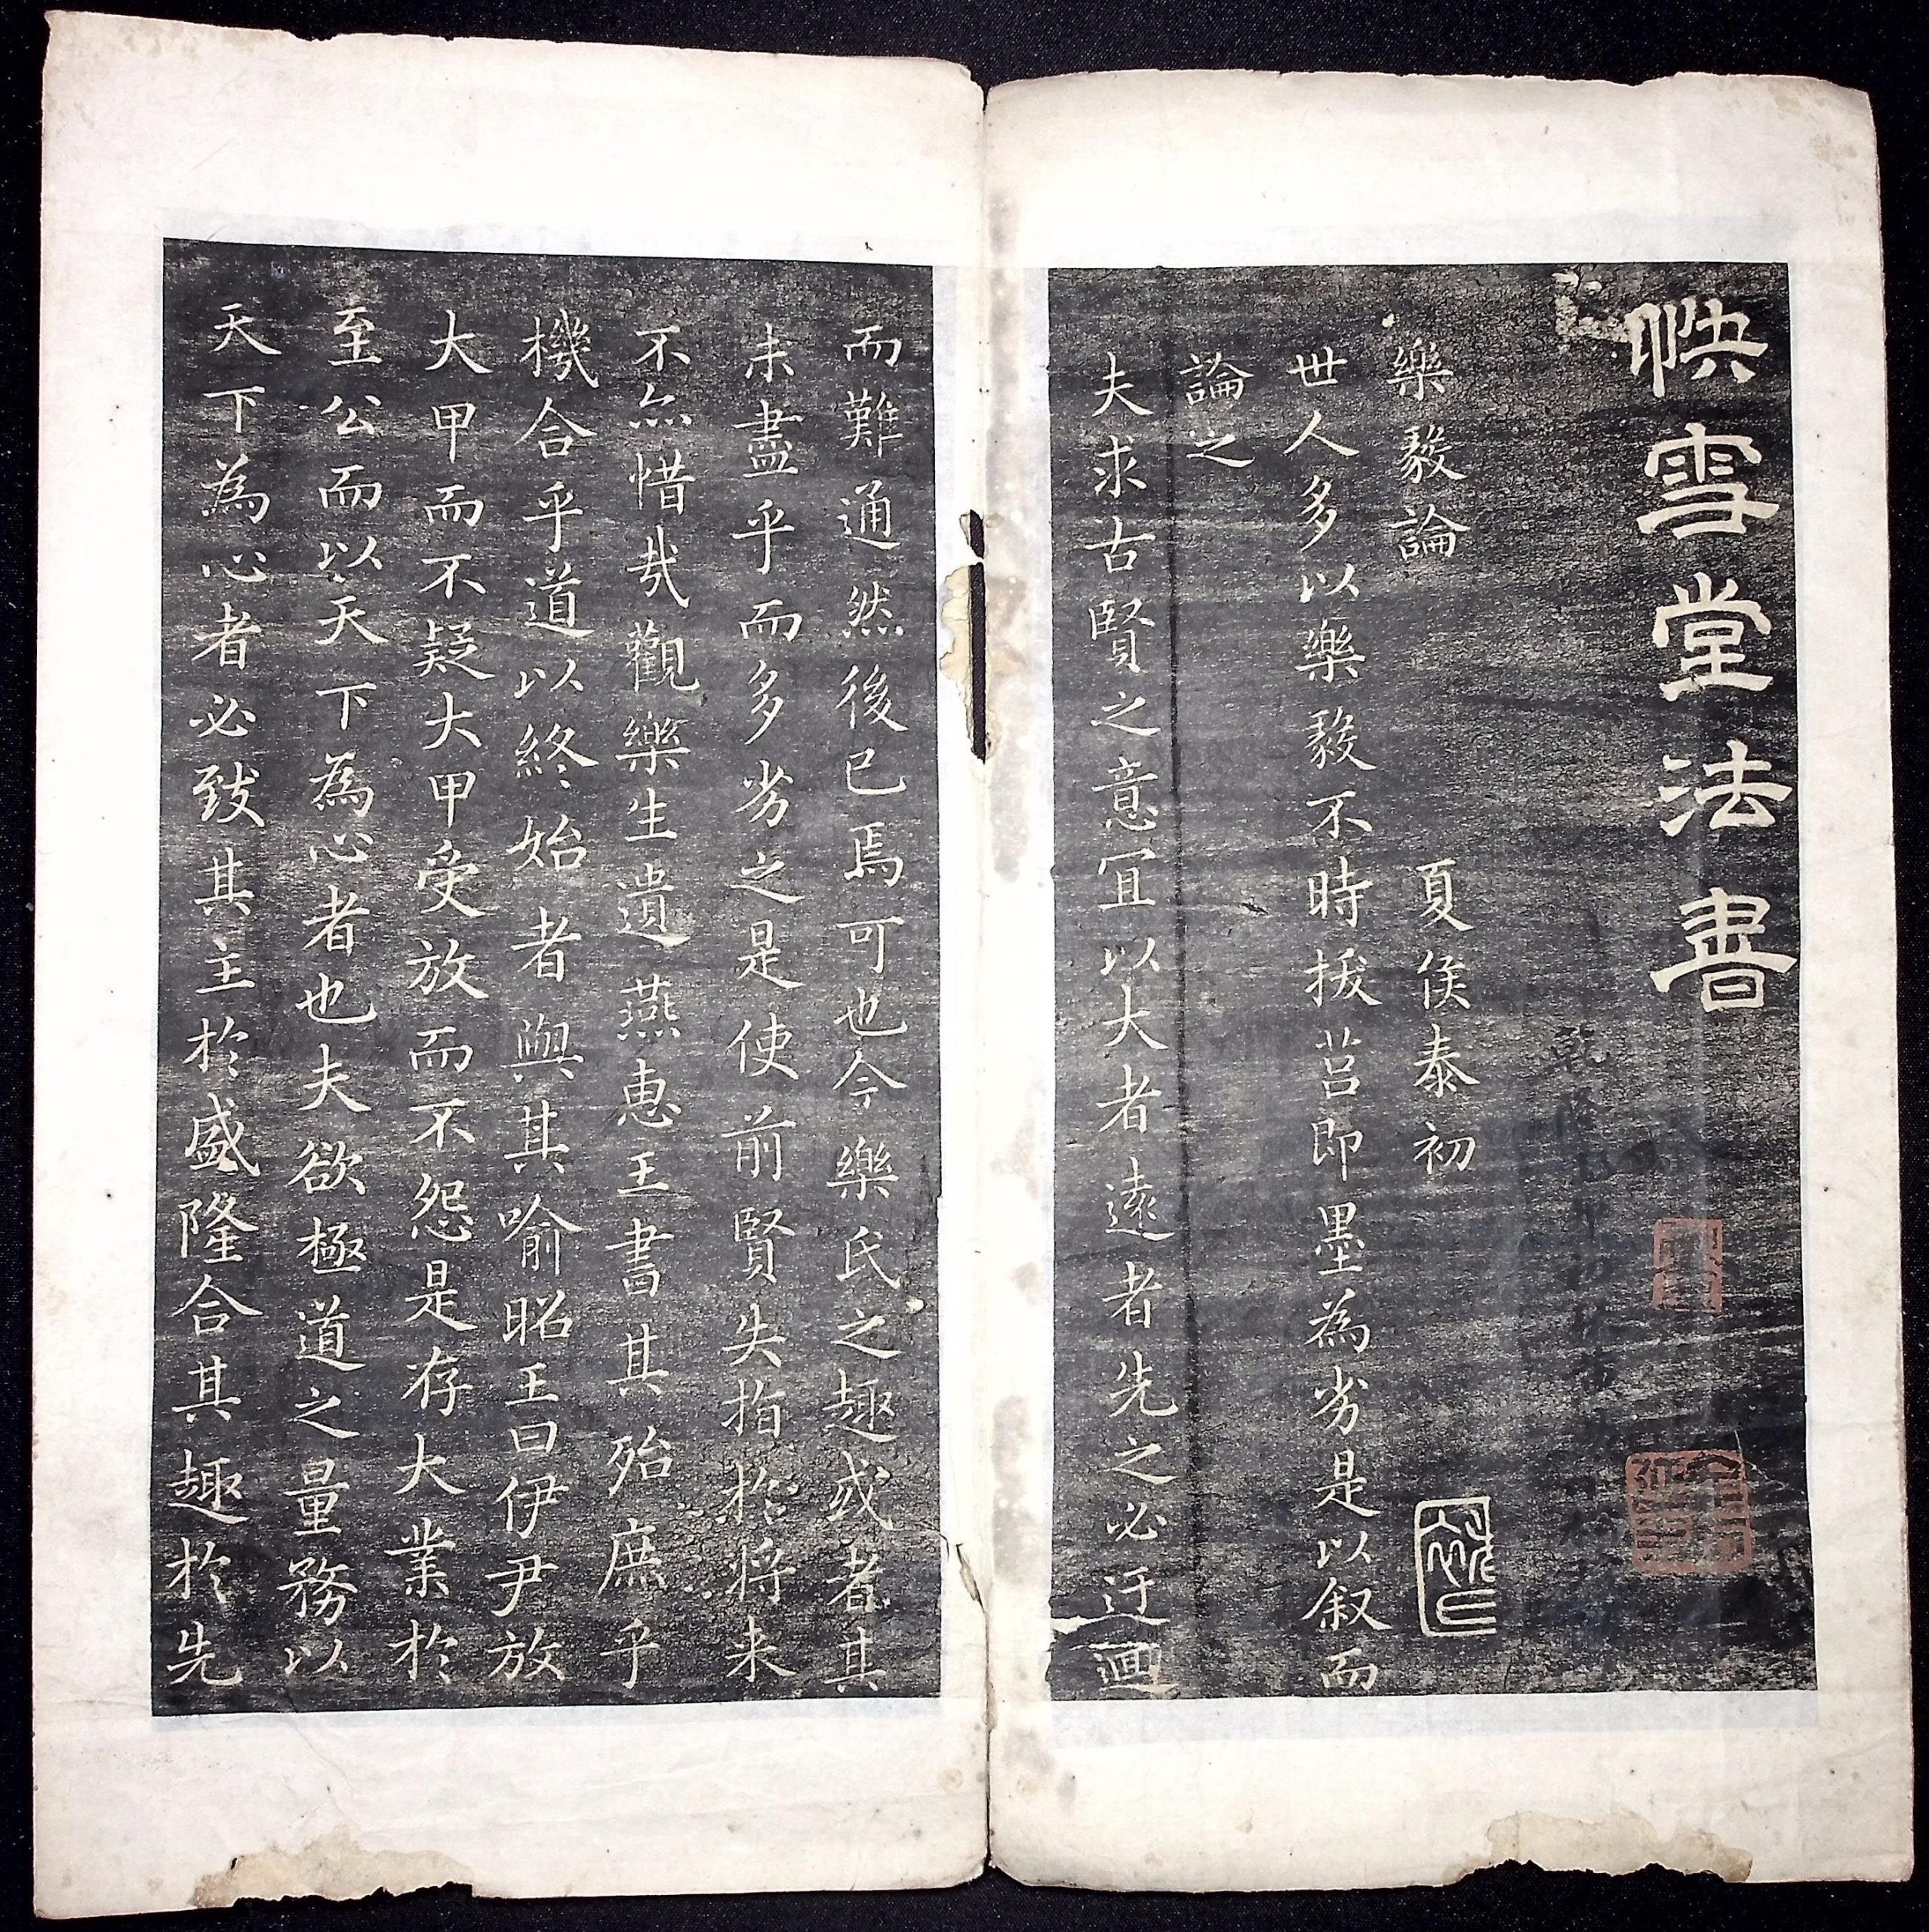 快雪堂法書
樂毅論
夏侯泰初
世人多以樂毅不時拔莒即墨為劣是以叙而
論之
夫求古賢之意宜以大者遠者先之必迂迴
而難通然後已焉可也今樂氏之趣或者其
未盡乎而多劣之是使前賢失指於将来
不亦惜哉觀樂生遺燕惠王書其殆庶乎
機合乎道以終始者與其喻昭王曰伊尹放
大甲而不疑大甲受放而不怨是存大業於
至公而以天下為心者也夫欲極道之量務以
天下為心者必致其主於盛隆合其趣於先